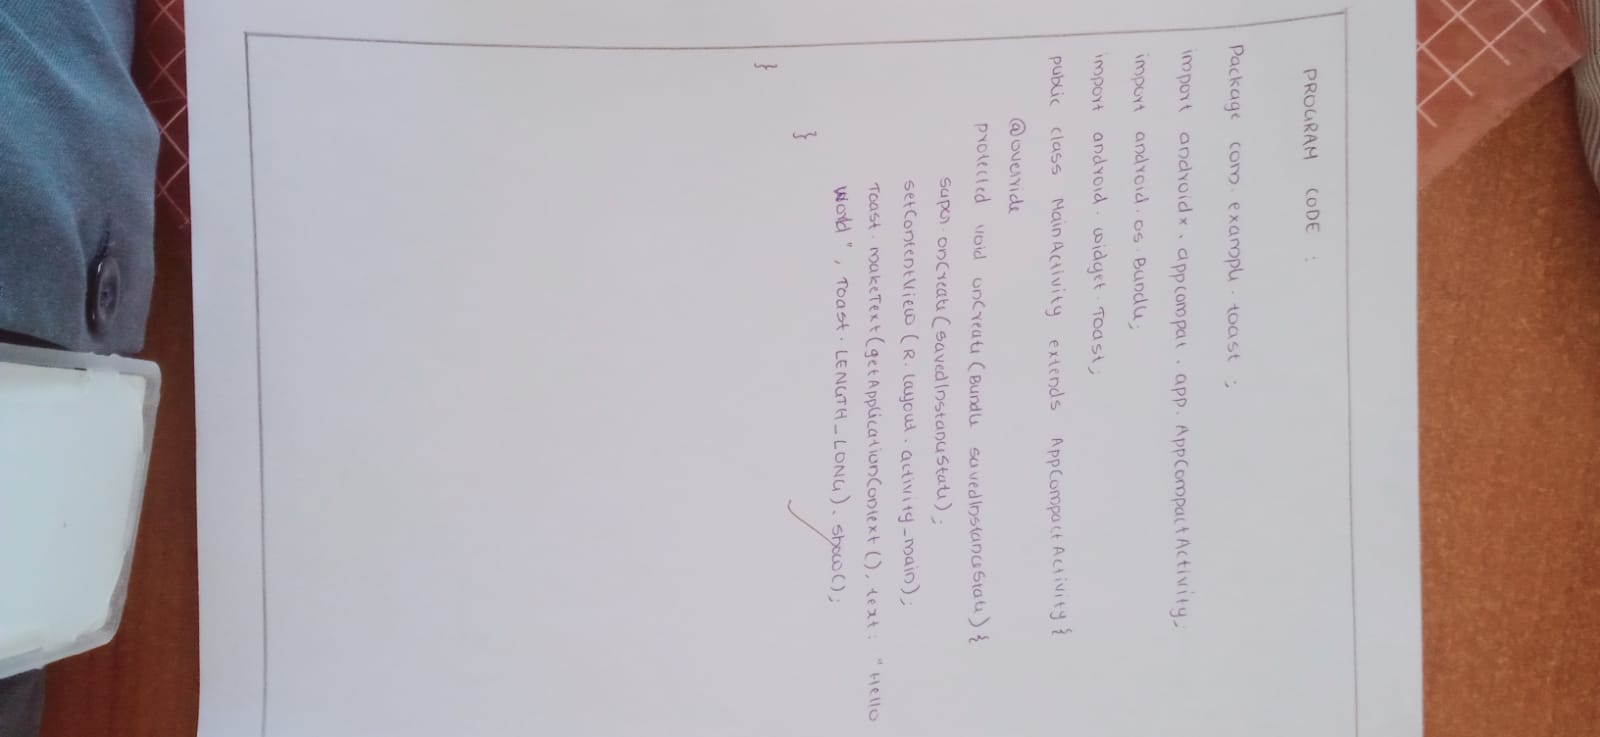 PROGRAM CODE :
Package com. example. toast ;
import androidx. appcompat. app. AppCompactActivity;
import android. os. Bundle;
import android. widget. Toast;
public class MainActivity extends AppCompactActivity {
@override
protected void onCreate (Bundle savedInstanceState) {
super. onCreate (savedInstanceState);
setContentView (R. layout. activity_main);
Toast. makeText (getApplicationContext (), text: "Hello
World", Toast. LENGTH_LONG). show();
}
}